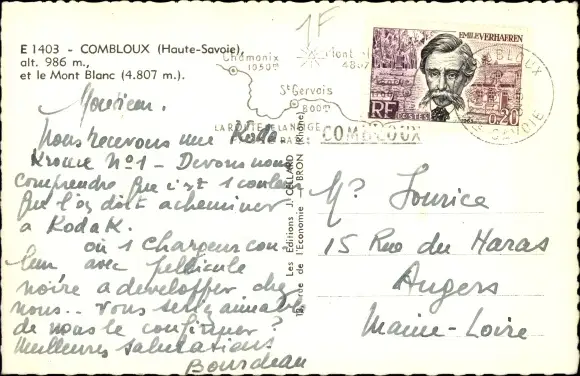 E 1403 - COMBLOUX (Haute-Savoie),
alt. 986 m.,
et le Mont Blanc (4.807 m.).
1F
Chamonix
1050m
Mont
4807
St Gervais
800m
LA ROUTE DE LA NEIGE
COMBLOUX
EMILE VERHAEREN
RF
POSTES
0,20
COMBLOUX
SAVOIE
Monsieur.
Nous recevons une Koda
Krome Nº1 - Devons nous
comprendre que c'est 1 couleur
que l'on doit acheminer
a Kodak.
où 1 Chargeur cou-
leur avec pellicule
noire a developper chez
nous.. Vous serez aimable
de nous le confirmer?
Meilleures salutations
Bourdeau
Les Editions J. CELLARD
rue de l'Economie - BRON (Rhône)
Mr Sourice
15 Rue du Haras
Angers
Maine-Loire